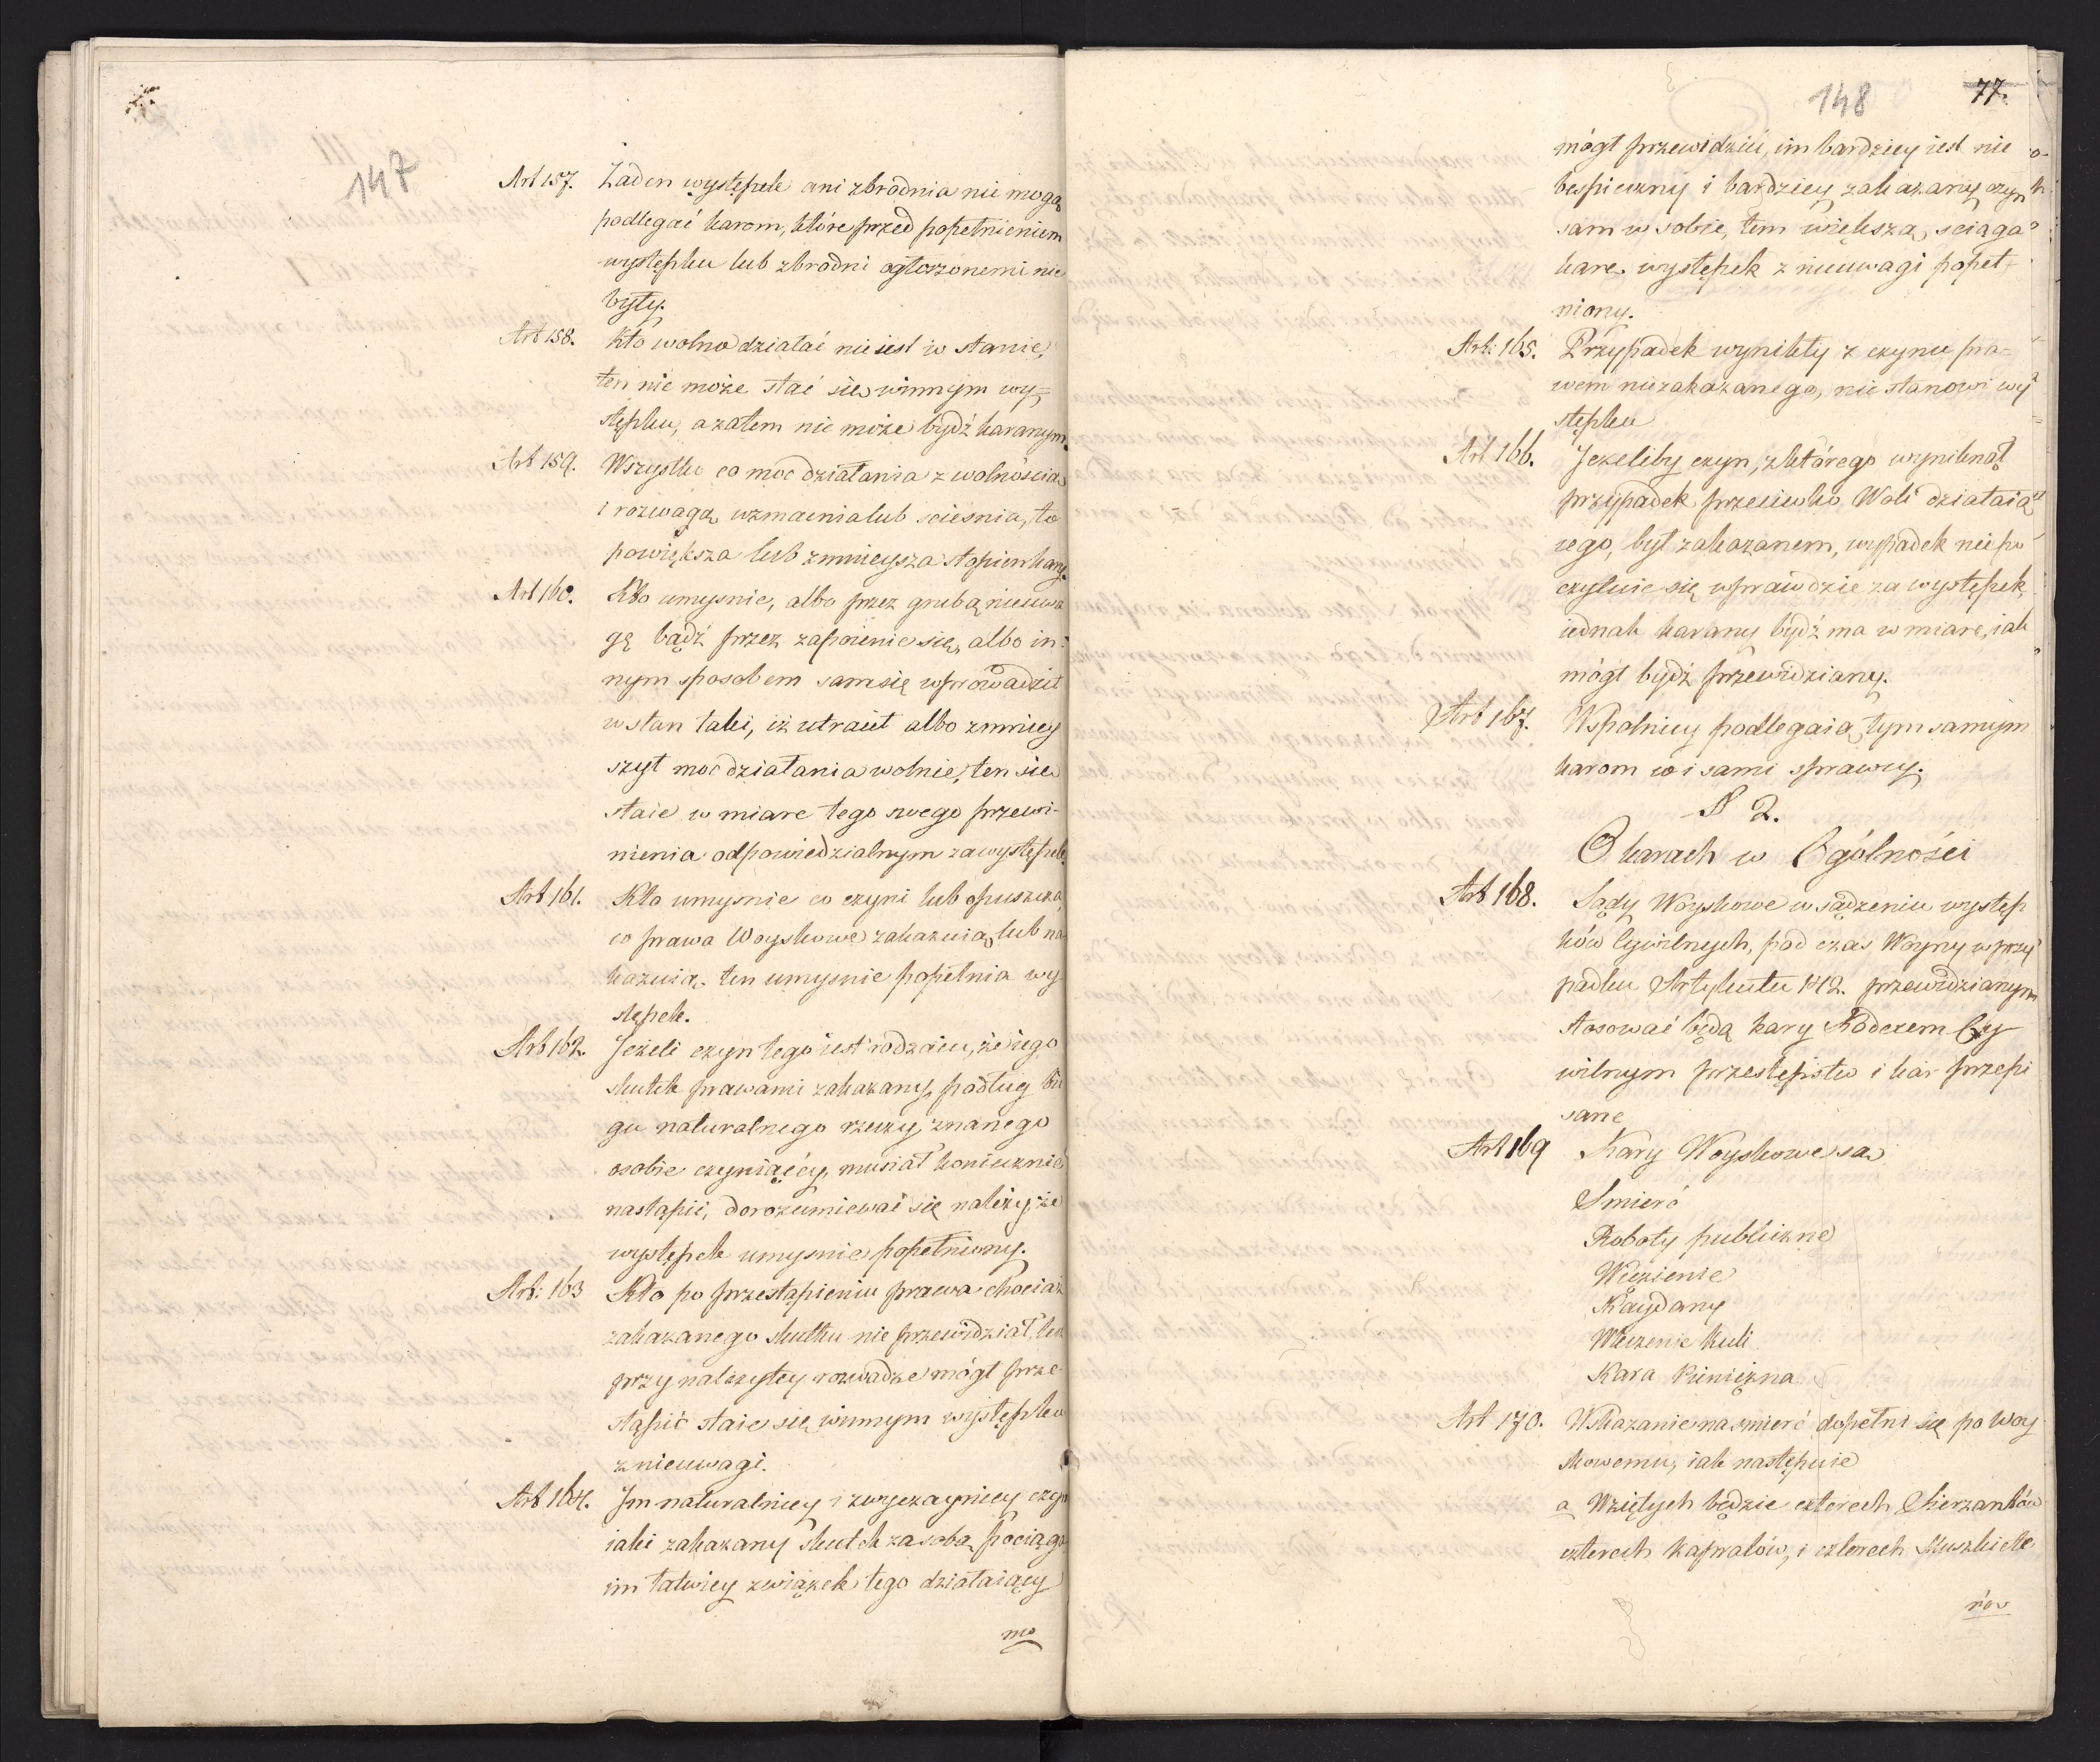 147
Art 157. Zaden występek ani zbrodnia nie mogą
podlegać karom, które przed popełnieniem
występku lub zbrodni ogłoszonemi nie
były.
Art 158. Kto wolno działać nie iest w stanie,
ten nie może stać się winnym wy=
stępku, a zatem nie może bydź karanym.
Art 159. Wszystko co moc działania z wolnością
i rozwagą wzmacnia lub sciesnia, to
powiększa lub zmnieysza stopien kary.
Art 160. Kto umysnie, albo przez grubą nieuwa
gę bądź przez zapoienie się, albo in-
nym sposobem sam się wprowadził
w stan taki, iż utracił albo zmniey
szył moc działania wolnie, ten się
staie w miarę tego swego przewi-
nienia odpowiedzialnym za występek.
Art 161. Kto umysnie co czyni lub opuszcza,
co prawa Woyskowe zakazuią, lub na
kazuią, ten umysnie popełnia wy
stępek.
Art 162. Jeżeli czyn tego iest rodzaiu, że iego
skutek prawami zakazany, podług bie
gu naturalnego rzeczy, znanego
osobie czyniącéy, musiał koniecznie
nastąpić, dorozumiewać się należy, że
występek umysnie popełniony.
Art: 163 Kto po przestąpieniu prawa chociaż
zakazanego skutku nie przewidział, lecz
przy należytey rozwadze mógł prze-
stąpić staie się winnym występku
z nieuwagi.
Art 164. Im naturalniey i zwyczayniey czyn
iaki zakazany skutek za sobą pociąga
im łatwiey związek tego działaiący
mo
148 77.
mógł przewidzić, im bardziey iest nie
bespieczny i bardziey zakazany czyn
sam w sobie, tem większą sciąga
karę występek z nieuwagi popeł=
niony.
Art: 165. Przypadek wynikły z czynu pra=
wem niezakazanego, nie stanowi wy
stępku
Art 166. Jezeliby czyn, z którego wyniknął
przypadek przeciwko Woli działaią
cego, był zakazanem, wypadek nie po
czytuie się wprawdzie za występek,
iednak karany bydź ma w miarę, iak
mógł bydź przewidziany.
Art 167. Wspolnicy podlegaią tym samym
karom co i sami sprawcy.
§ 2.
O karach w Ogólności
Art 168. Sądy Woyskowe w sądzeniu występ
ków Cywilnych, pod czas Woyny w przy
padku Artykułu 142. przewidzianym
stosować będą kary Kodexem Cy
wilnym przestępstw i kar przepi
sane
Art 169 Kary Woyskowe są
Smierć
Roboty publiczne
Więzienie
Kaydany
Włuczenie kuli
Kara Pieniężna
Art 170. Wskazanie na smierć dopełni się po Woy
skowemu, iak następuie
a Wziętych będzie czterech Sierzantów
czterech kapralów, i czterech Muszkiete
rów